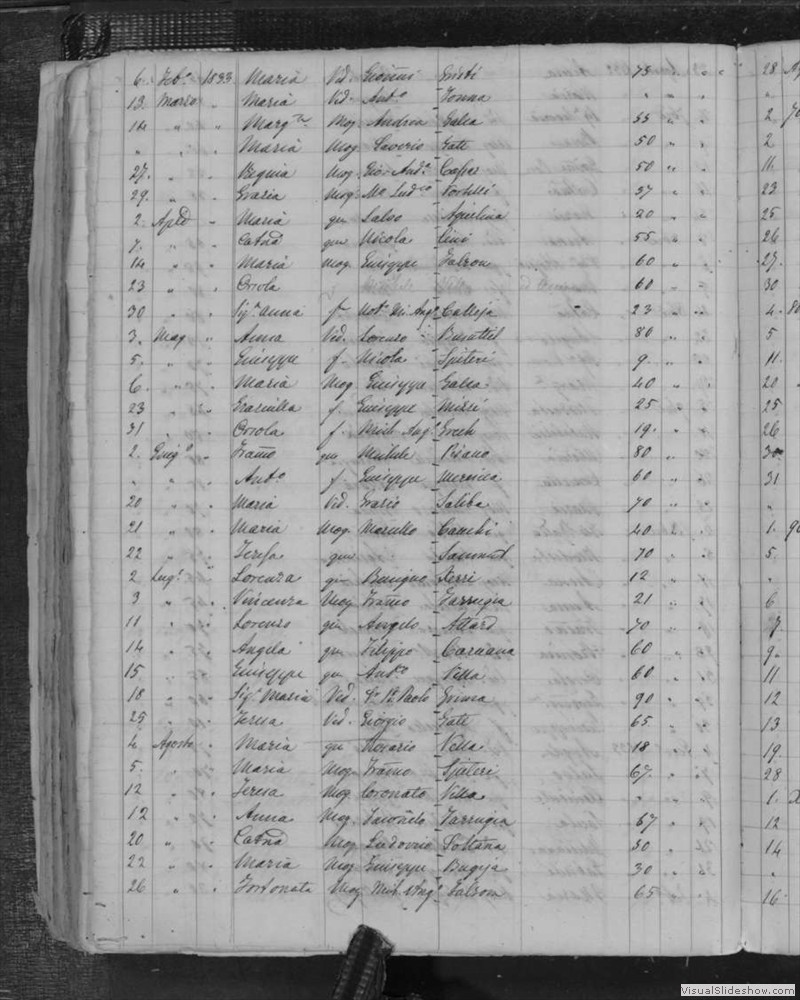 6. Feb.o 1833 Maria Vid. Giovni 75 " " 28
13 Marzo " Maria Vid. Anto Tonna " " " "
14 " " Marg.ta Mog. Andrea Galea 55 " " 2
" " " Maria Mog. Saverio Gatt 50 " " 2
27. " " Mog. Gio: And.a 50 " " 11.
29. " " Grazia Mog. 37 " " 23
2. Aple " Maria qm Salvo Aquilina 20 " " 25
7. " " Catna qm Nicola 55 " " 26
14 " " Maria Mog. Giuseppe Falzon 60 " " 27.
23 " " Orsola 60 " " 30
30 " " Sig.a Anna f. Not.o Mi. Ang.o Calleja 23 " " 4.
3. Mag " Anna Vid. Lorenzo Busuttil 80 " " 5
5. " " Giuseppe f. Nicola Spiteri 9 " " 11.
6. " " Maria Mog Giuseppe Galea 40 " " 20
23 " " Graziulla f. Giuseppe 25 " " 25
31 " " Orsola f. Mich. Ang.o Grech 19. " " 26
2. Giug.o " Franco qm Michele Pisano 80 " " 30
" " " Anto f. Giuseppe Mercieca 60 " " 31
20 " " Maria Vid. Grazio Saliba 70 " " "
21 " " Maria Mog. Marcello 40 " " 1.
22 " " Teresa qm Sammut 70 " " 5.
2 Lug.o " Lorenza qm Benigno Xerri 12 " " "
3 " " Vincenza Mog Franco Farrugia 21 " " 6
11 " " Lorenzo qm Angelo Attard 70 " " 7
14 " " Angela qm Filippo Caruana 60 " " 9.
15 " " Giuseppe qm Anto Vella 60 " " 11
18 " " Sig.a Maria Vid. Paolo Grima 90 " " 12
25 " " Teresa Vid. Giorgio Gatt 65 " " 13
4. Agosto " Maria qm Rosario Vella 18 " " 19
5. " " Maria Mog. Franco Spiteri 67. " " 28
12 " " Teresa Mog Coronato Vella " " " 1.
12 " " Anna Mog. Farrugia 67 " " 12
20 " " Catna Mog Ludovico Soltana 30 " " 14
22 " " Maria Mog Giuseppe Bugeja 30 " " "
26 " " Fortunata Mog Mich. Ang.o Falzon 65 " " 16
VisualSlideshow.com